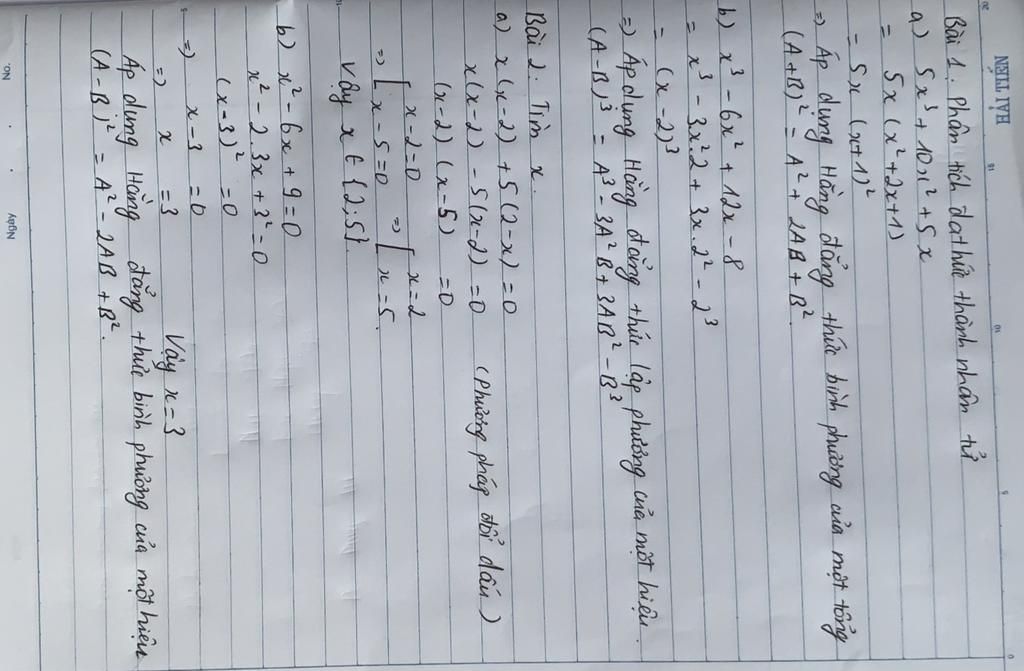 HẢI TIẾN
Bài 1. Phân tích đa thức thành nhân tử
a) 5x³ + 10x² + 5x
= 5x (x² + 2x + 1)
= 5x (x+1)²
=) Áp dụng Hằng đẳng thức bình phương của một tổng
(A+B)² = A² + 2AB + B².
b) x³ - 6x² + 12x - 8
= x³ - 3x²2 + 3x.2² - 2³
= (x-2)³
=) Áp dụng Hằng đẳng thức lập phương của một hiệu.
(A-B)³ = A³ - 3A²B + 3AB² - B³
Bài 2: Tìm x.
a) x(x-2) + 5(2-x) = 0
x(x-2) - 5(x-2) = 0 (phương pháp đổi dấu)
(x-2) (x-5) = 0
=) [ x-2=0 =) [ x=2
[ x-5=0 [ x=5.
Vậy x ∈ {2;5}.
b) x² - 6x + 9 = 0
x² - 2.3x + 3² = 0
(x-3)² = 0
=) x-3 = 0
=) x = 3 Vậy x=3
Áp dụng Hằng đẳng thức bình phương của một hiệu
(A-B)² = A² - 2AB + B².
No.
Ngày